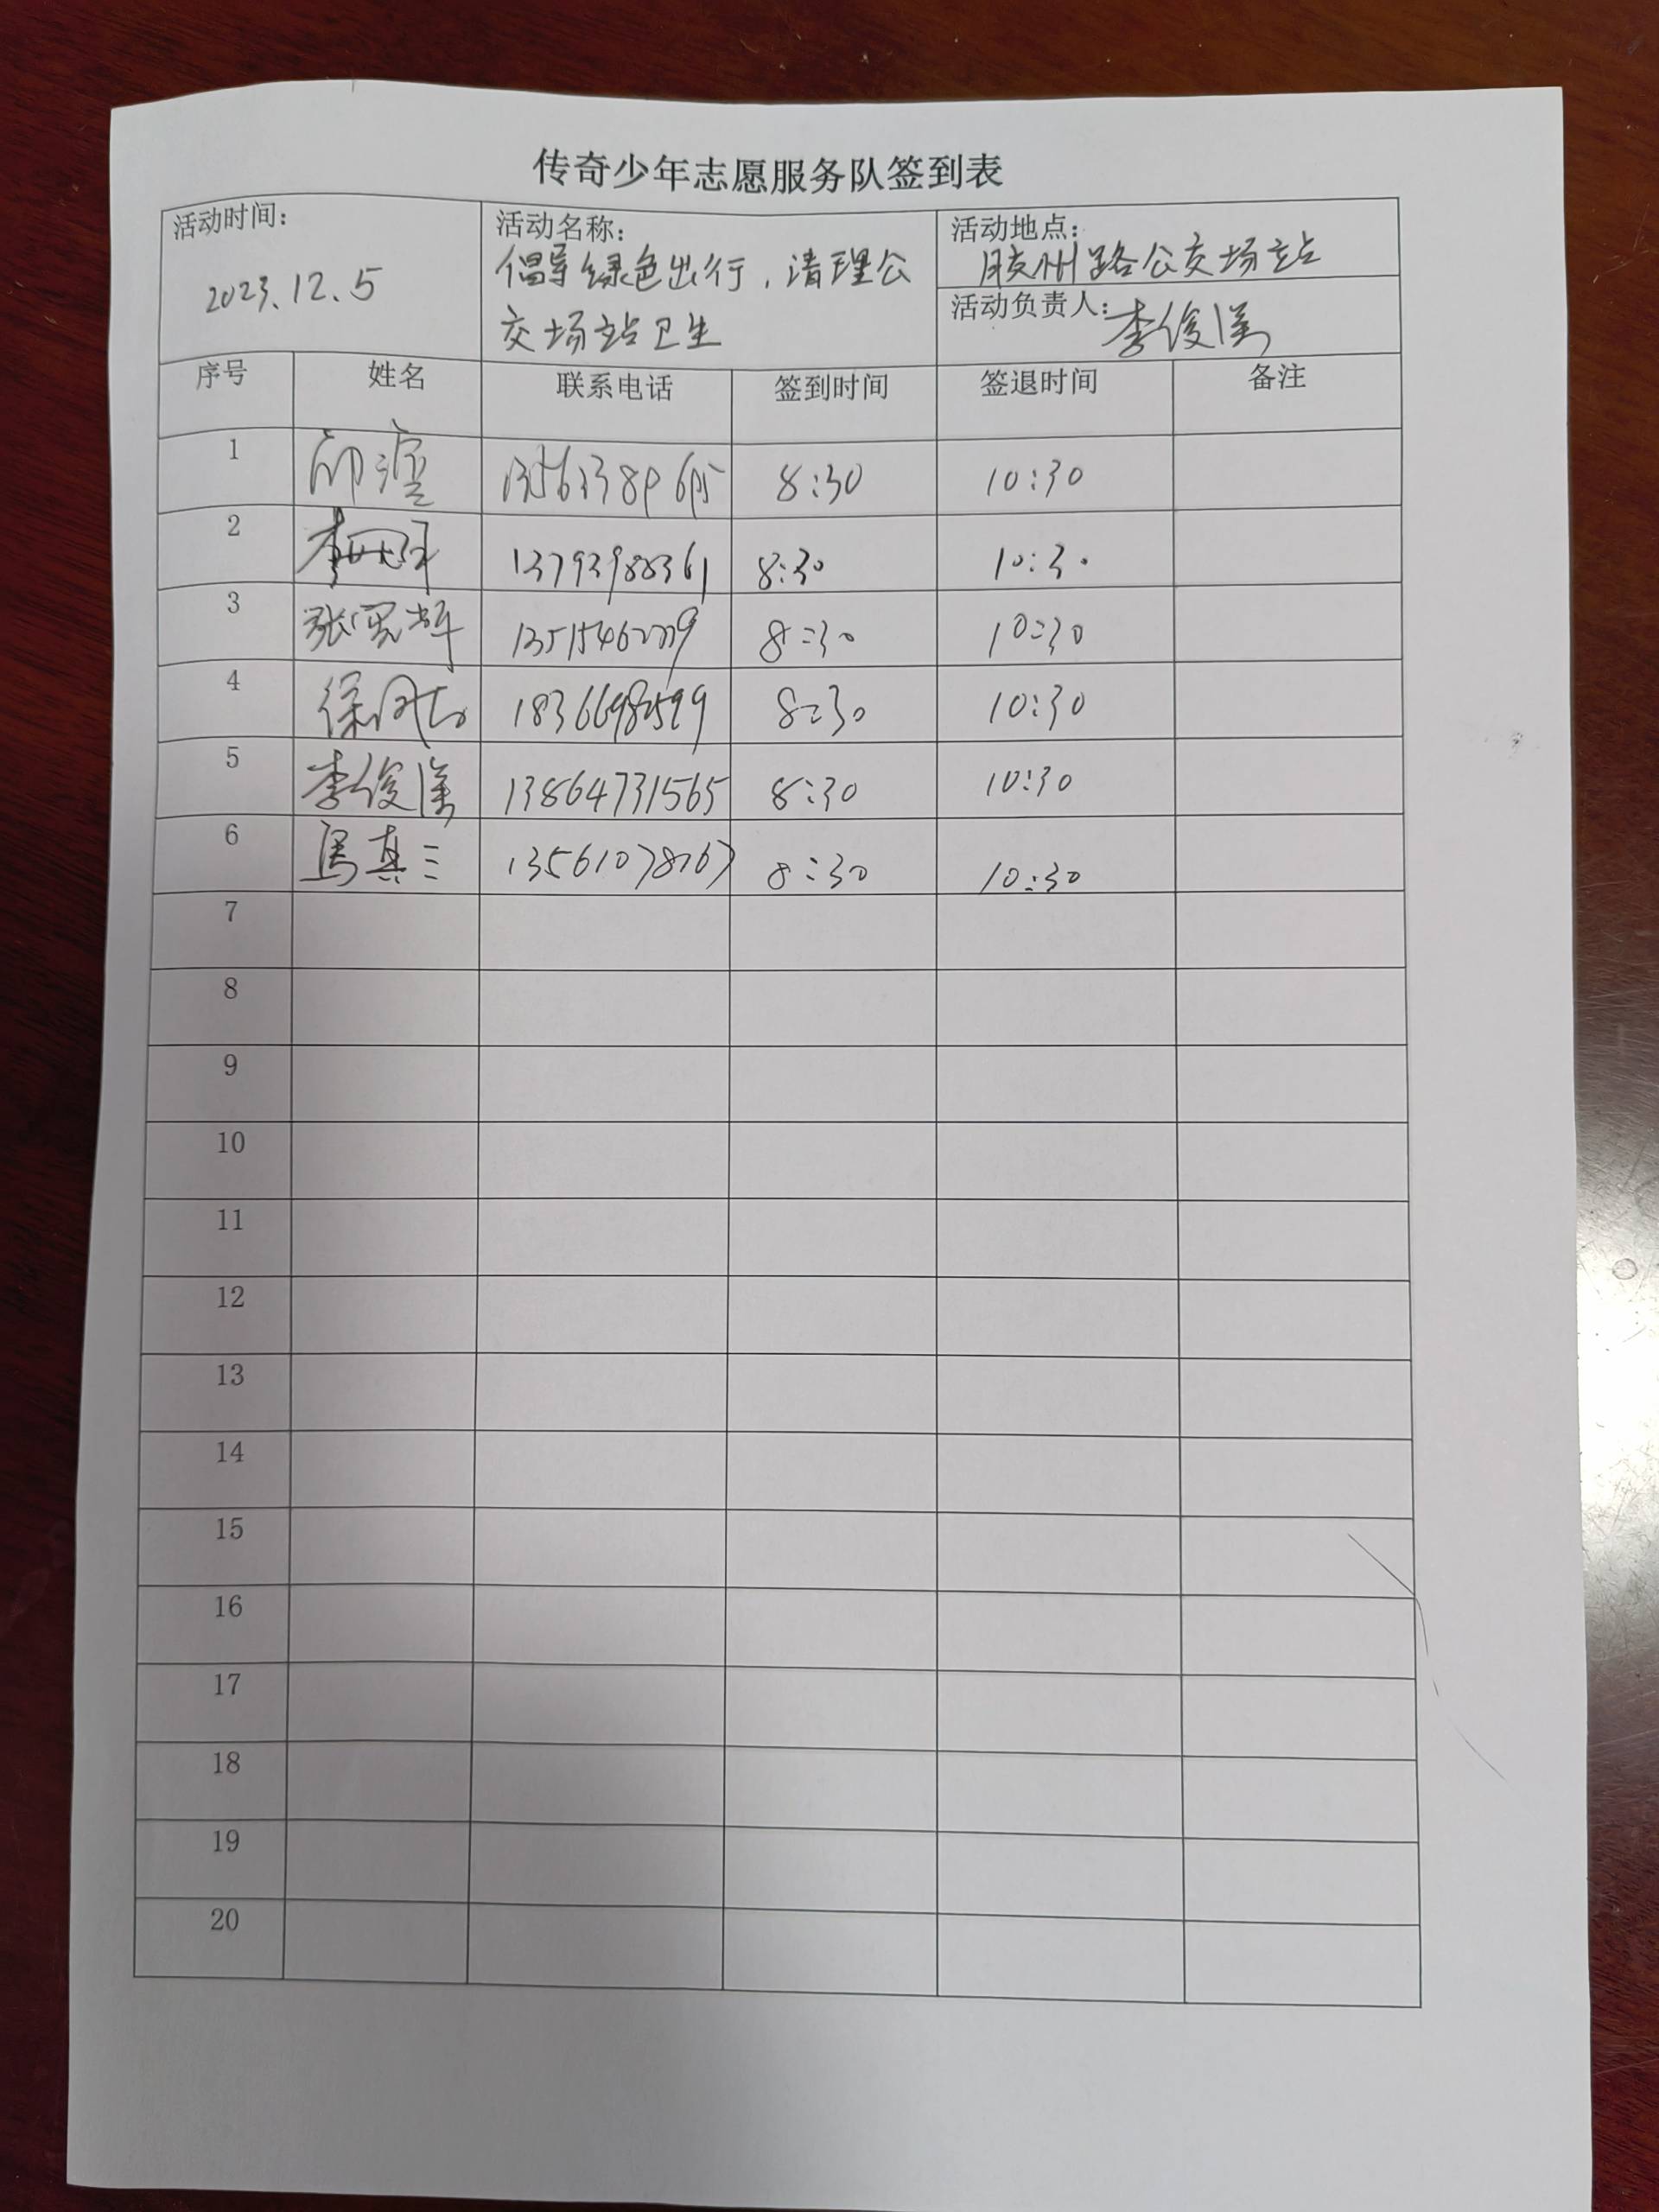 传奇少年志愿服务队签到表
活动时间：
2023.12.5
活动名称：
倡导绿色出行，清理公
交场站卫生
活动地点：
胶州路公交场站
活动负责人：李俊
序号 姓名 联系电话 签到时间 签退时间 备注
1 8:30 10:30
2 李 13793988361 8:30 10:30
3 张 8:30 10:30
4 徐 8:30 10:30
5 李俊 13864731565 8:30 10:30
6 马真三 13561078767 8:30 10:30
7
8
9
10
11
12
13
14
15
16
17
18
19
20